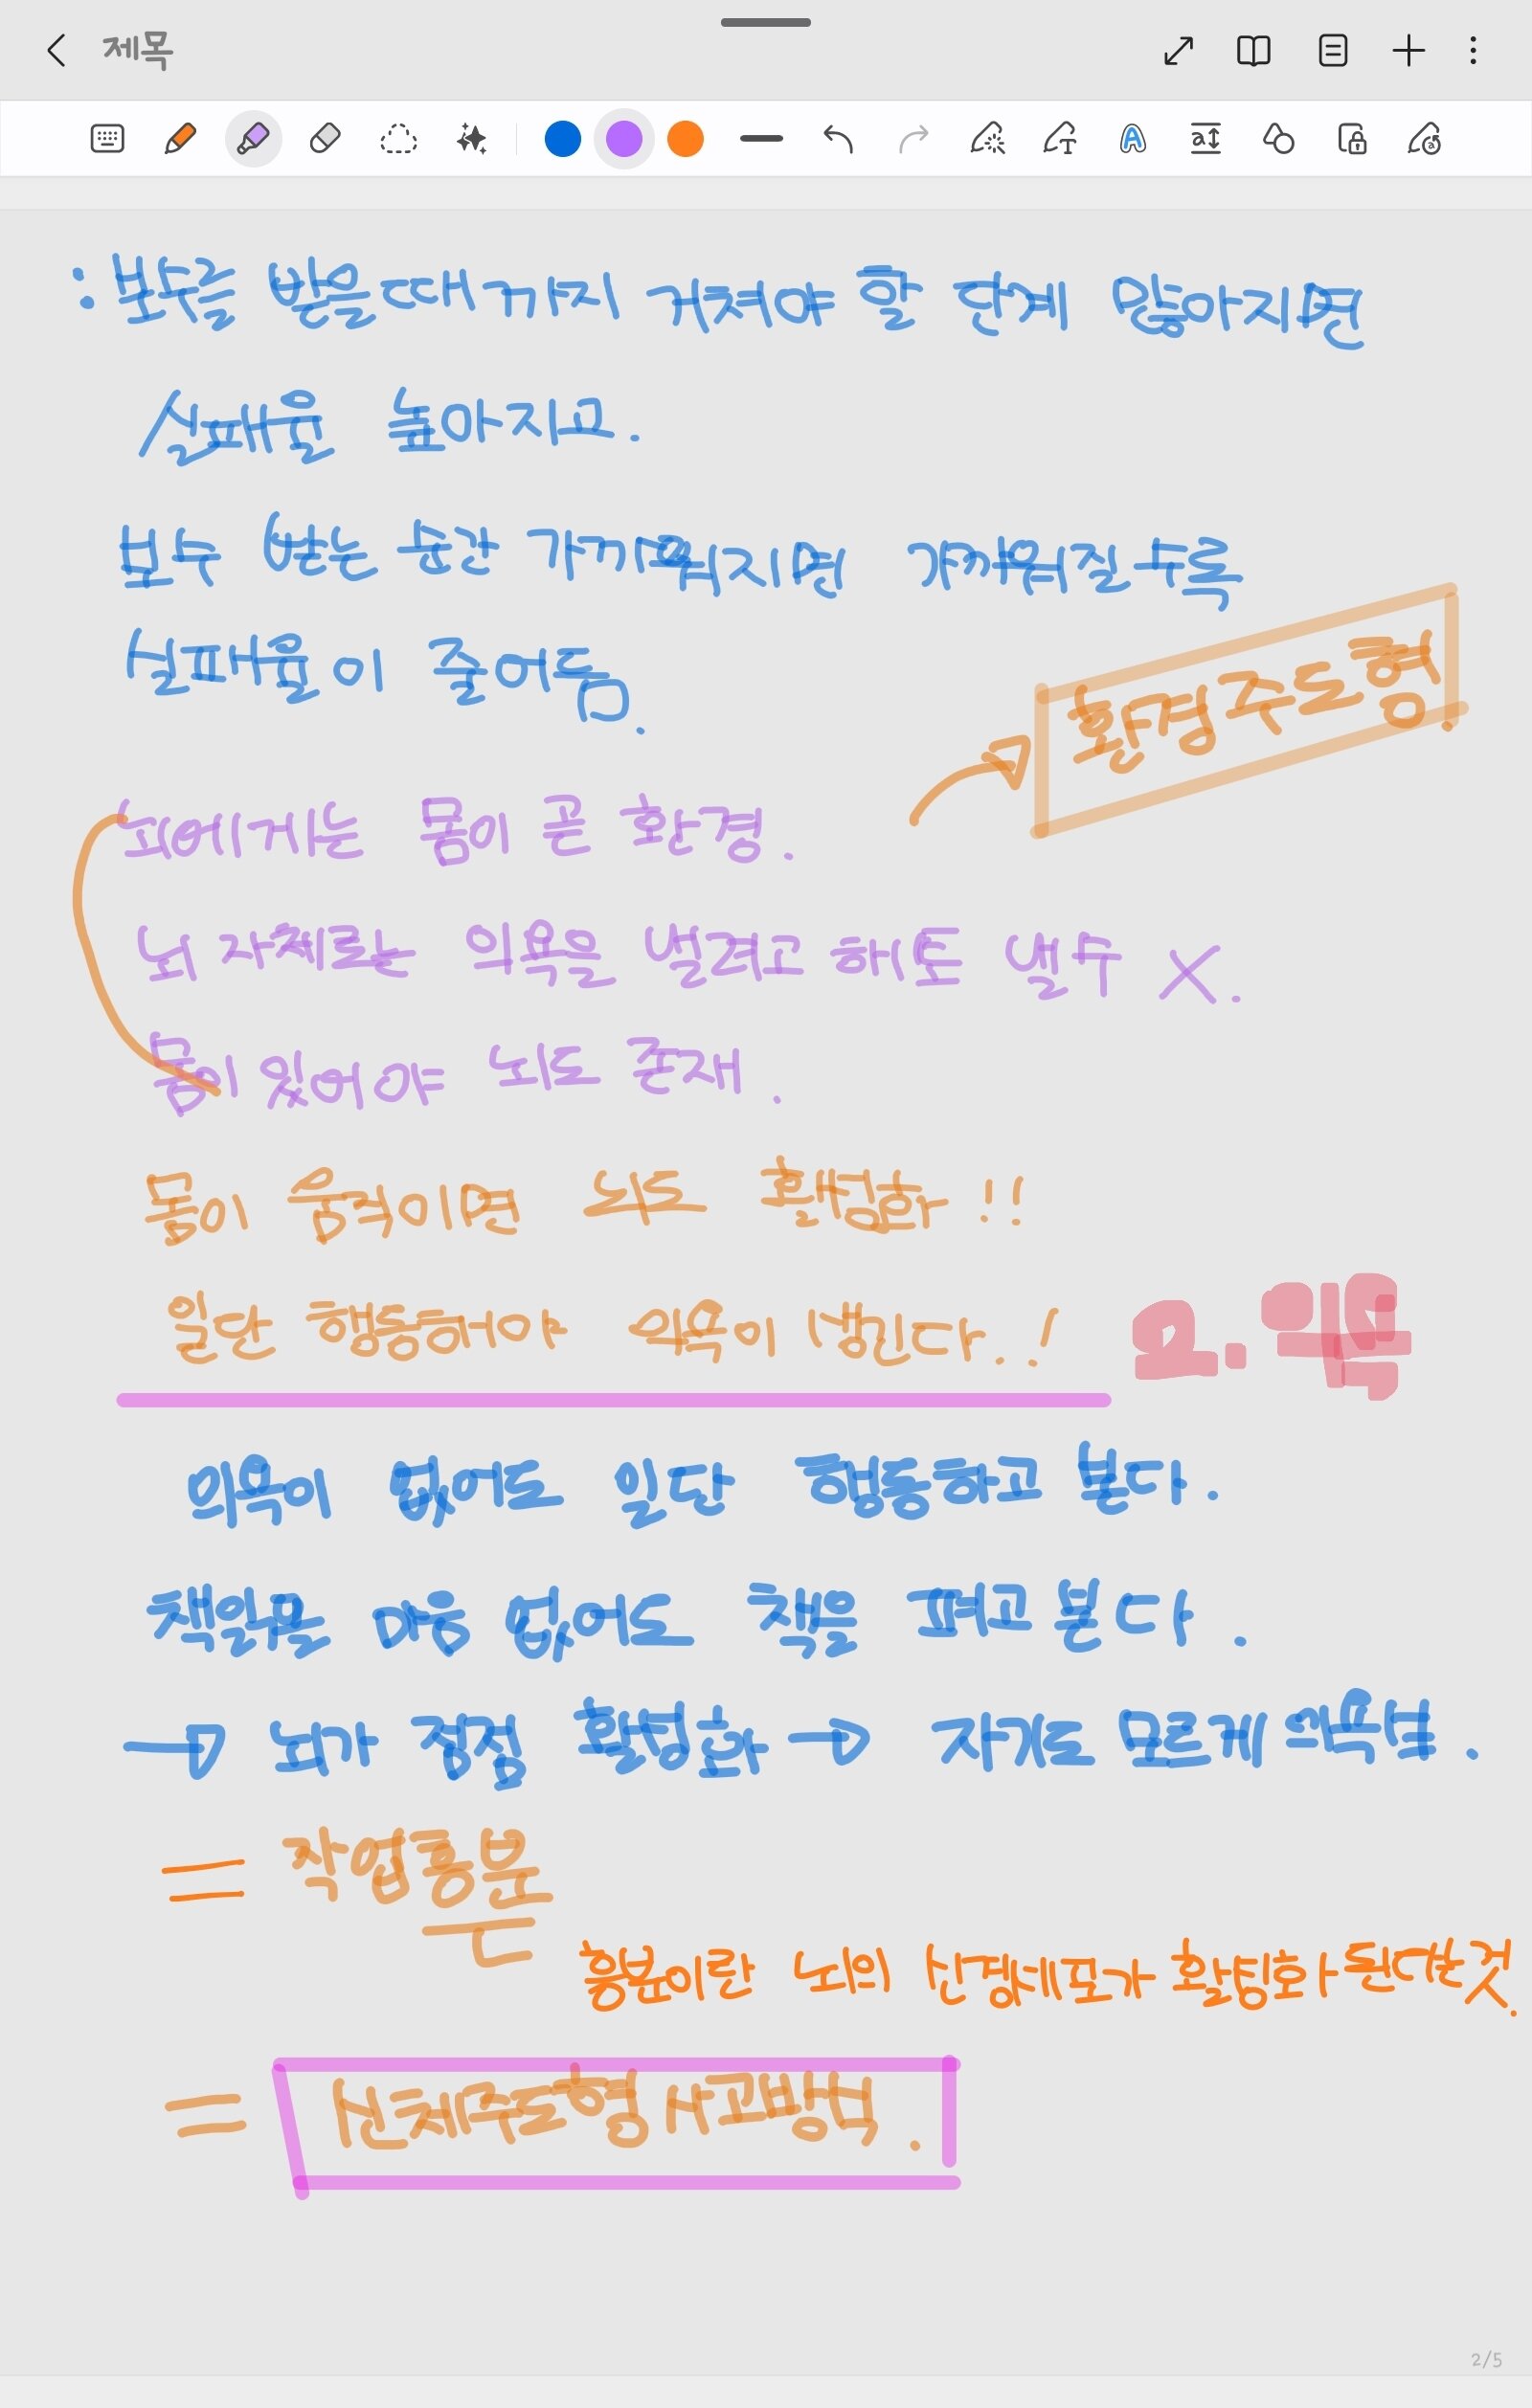 제목
: 보수를 받을 때까지 거쳐야 할 단계 많아지면
실패율 높아지고.
보수 받는 순간 가까워지면 가까워질수록
실패율이 줄어듬.
환경주도형.
뇌에게는 몸이 곧 환경.
뇌 자체로는 의욕을 낼려고 해도 낼수 X.
몸이 있어야 뇌도 존재.
몸이 움직이면 뇌도 활성화!!
일단 행동해야 의욕이 생긴다..!
2. 의욕
의욕이 없어도 일단 행동하고 본다.
책읽을 마음 없어도 책을 펴고 본다.
→ 뇌가 점점 활성화 → 자기도 모르게 의욕넘.
= 작업흥분
ㄴ 흥분이란 뇌의 신경세포가 활성화 된다는 것.
= 신체주도형 사고방식.
2/5